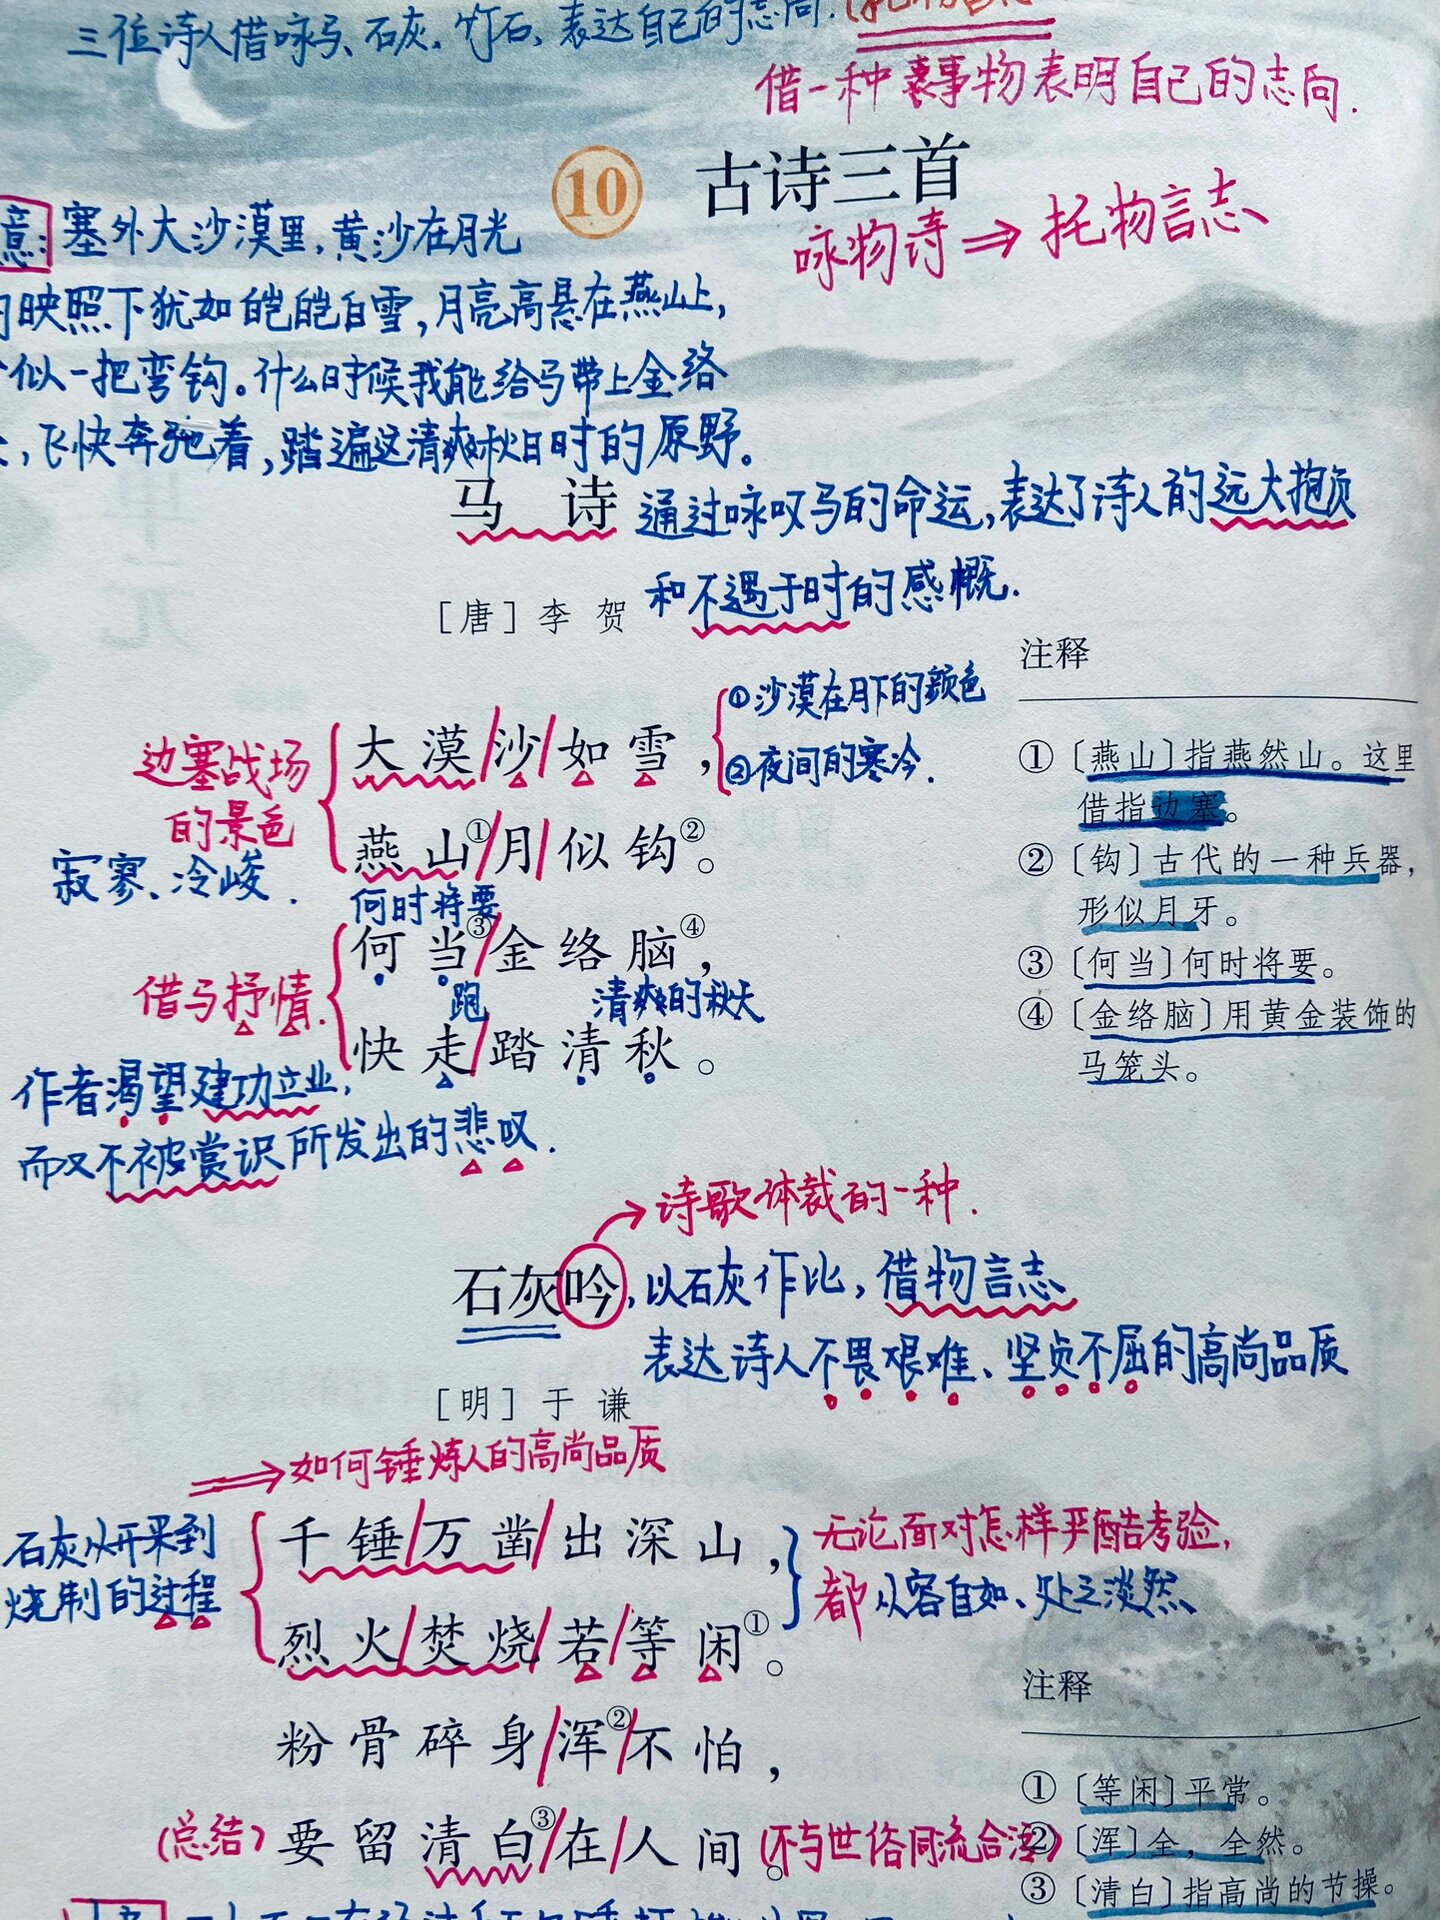 三位诗人借咏马、石灰、竹石,表达自己的志向.
借一种事物表明自己的志向.
10 古诗三首
咏物诗⇒托物言志
意:塞外大沙漠里,黄沙在月光
映照下犹如皑皑白雪,月亮高悬在燕山上,
似一把弯钩。什么时候我能给马带上金络
,飞快奔驰着,踏遍这清爽秋日时的原野。
马诗
通过咏叹马的命运,表达了诗人的远大抱负
和不遇于时的感慨.
[唐]李贺
边塞战场
的景色
寂寥、冷峻.
大漠/沙/如雪,
①沙漠在月下的颜色
②夜间的寒冷.
燕山①/月/似钩②。
何时将要
何当③/金络脑④,
跑
清爽的秋天
快走/踏清秋。
借马抒情.
作者渴望建功立业,
而又不被赏识所发出的悲叹.
注释
①〔燕山〕指燕然山。这里
借指边塞。
②〔钩〕古代的一种兵器,
形似月牙。
③〔何当〕何时将要。
④〔金络脑〕用黄金装饰的
马笼头。
→诗歌体裁的一种.
石灰吟
,以石灰作比,借物言志
表达诗人不畏艰难、坚贞不屈的高尚品质
[明]于谦
⇒如何锤炼人的高尚品质
石灰从开采到
烧制的过程
千锤/万凿/出深山,
烈火/焚烧/若/等闲①。
无论面对怎样严酷考验,
都从容自如、处之淡然
粉骨碎身/浑②/不怕,
(总结)要留清白③/在/人间。(不与世俗同流合污)
注释
①〔等闲〕平常。
②〔浑〕全,全然。
③〔清白〕指高尚的节操。